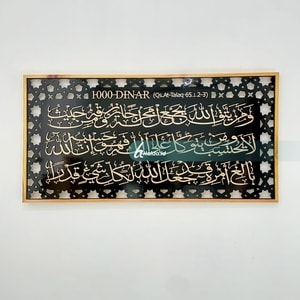 1000 DINAR (Qs.At-Talaq 65 : 2-3)
ومن يتق الله يجعل له مخرجا ويرزقه من حيث
لا يحتسب ومن يتوكل على الله فهو حسبه إن الله
بالغ أمره قد جعل الله لكل شيء قدرا